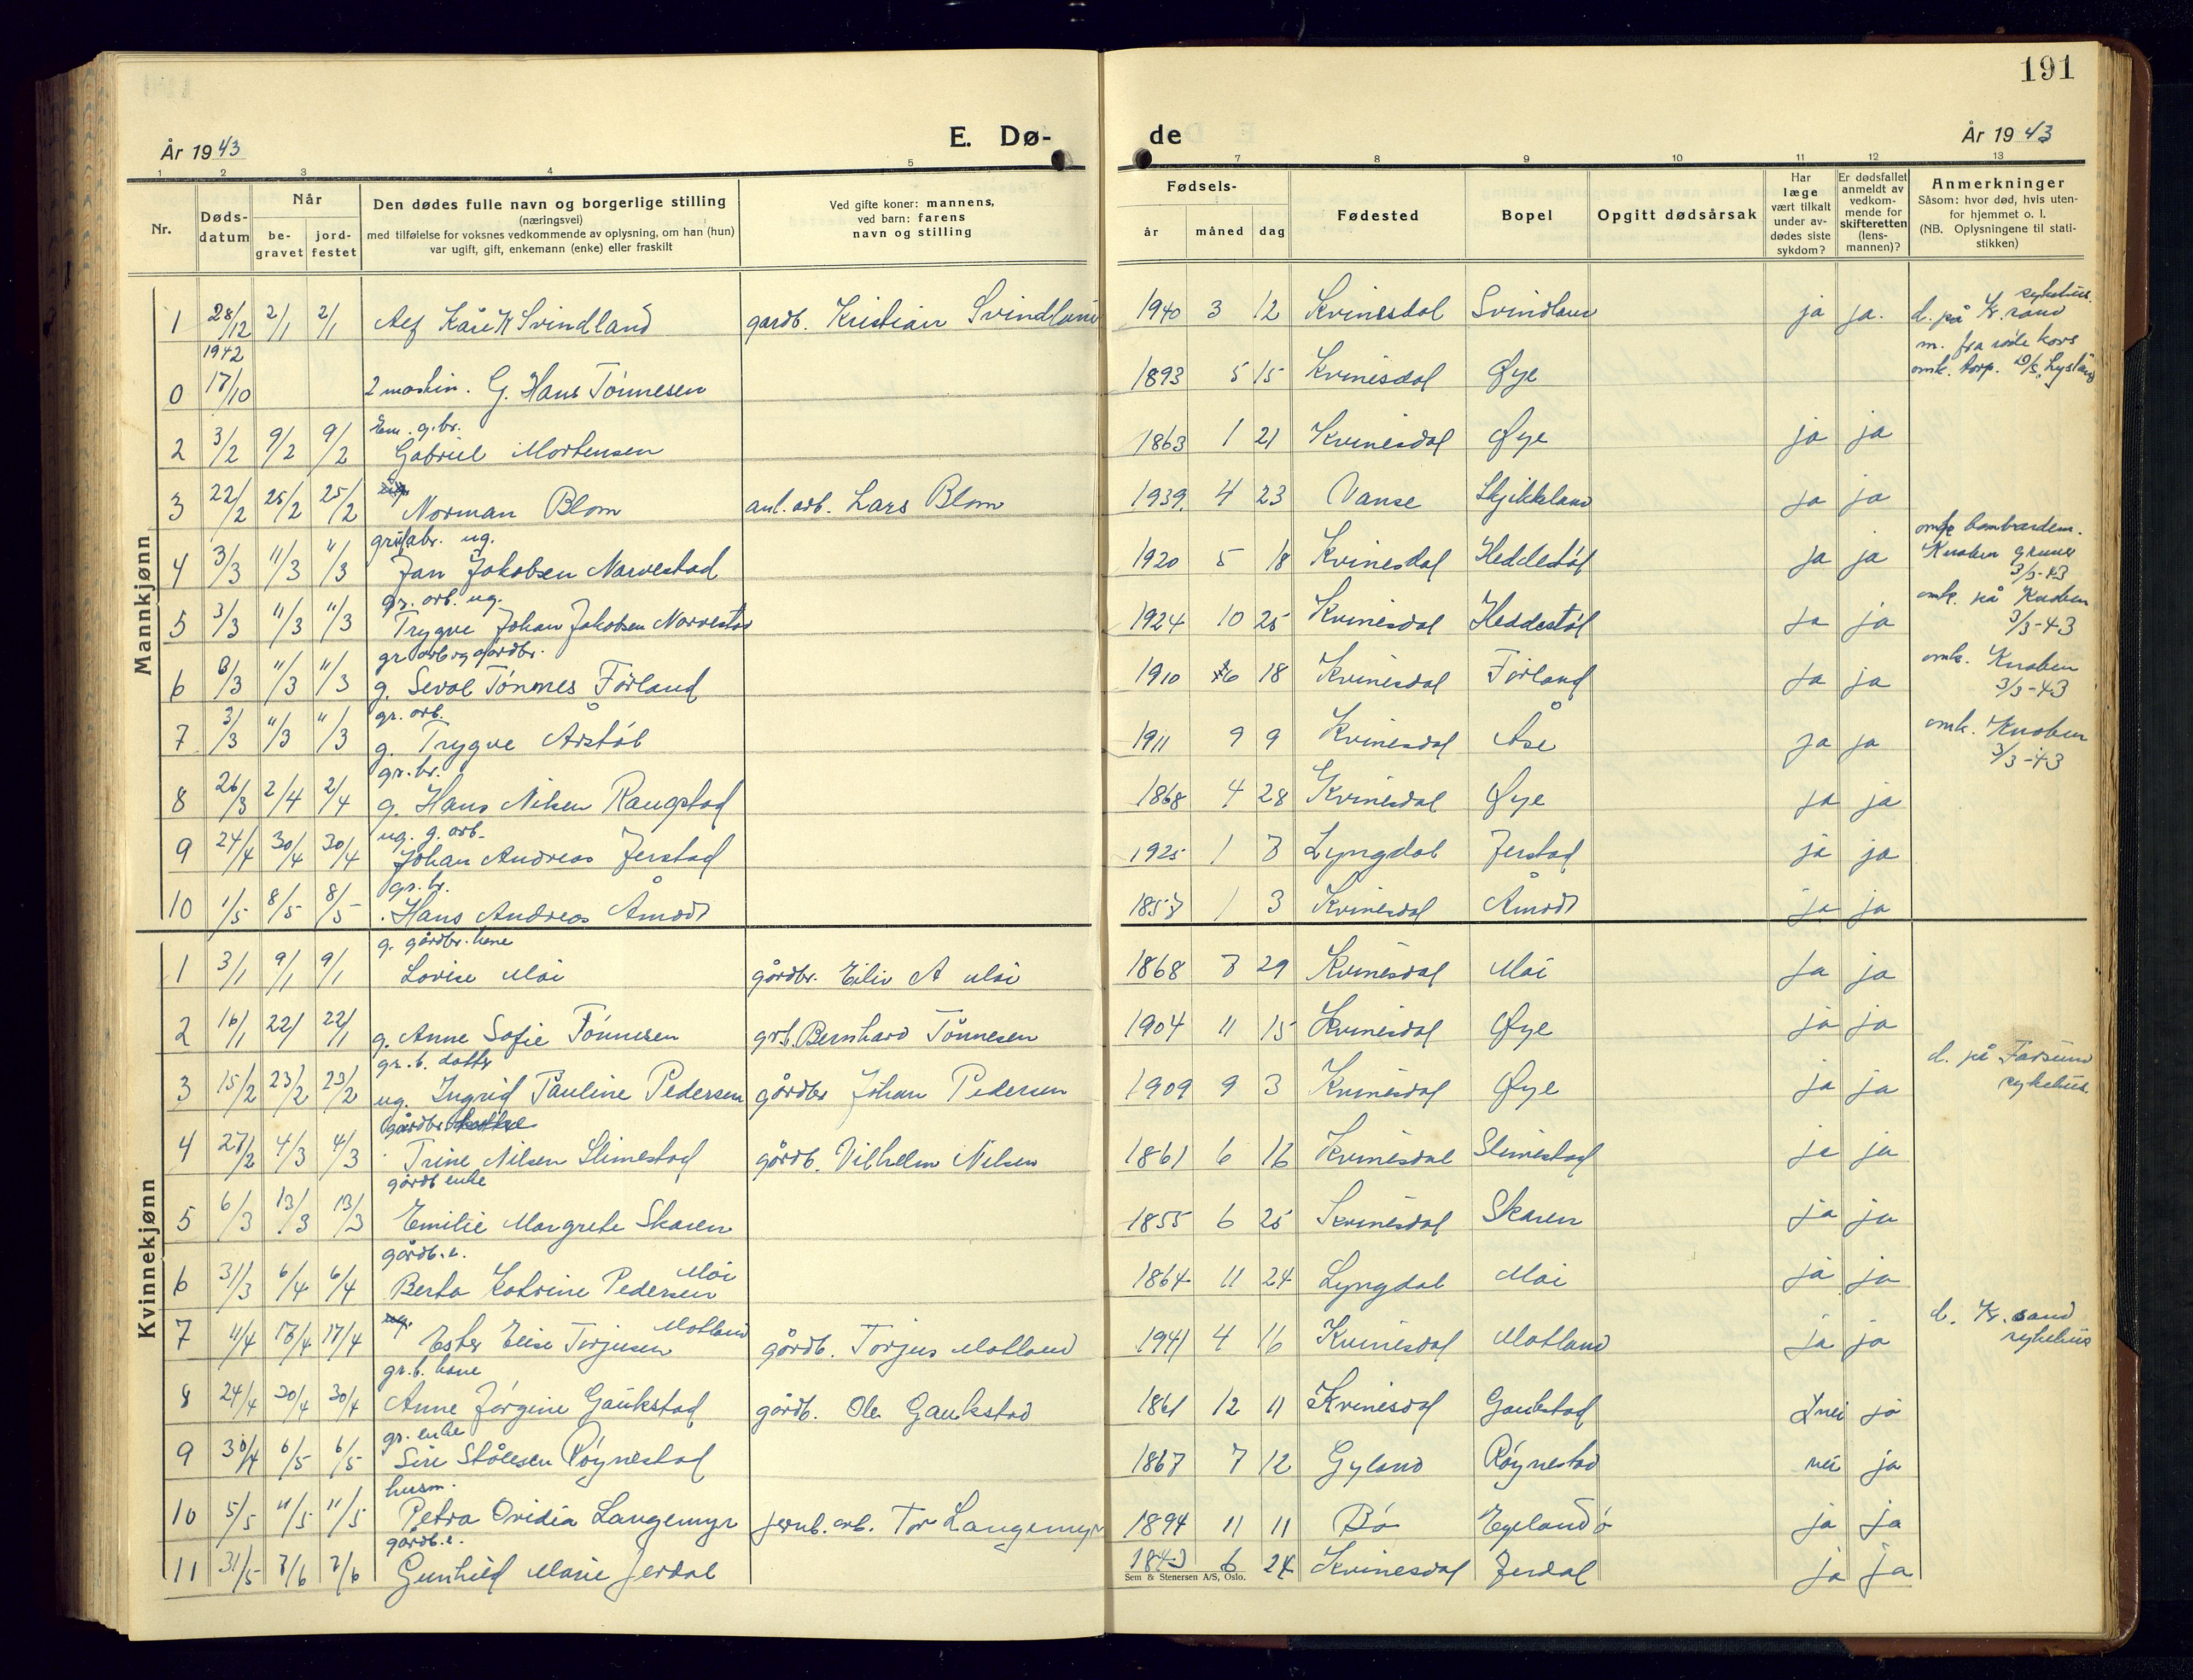 191
År 1943
E. Dø-
de
År 1943
1 2 3 4 5 7 8 9 10 11 12 13
Nr.
Døds-
datum
Når
be-
gravet
jord-
festet
Den dødes fulle navn og borgerlige stilling
(næringsvei)
med tilføielse for voksnes vedkommende av oplysning, om han (hun)
var ugift, gift, enkemann (enke) eller fraskilt
Ved gifte koner: mannens,
ved barn: farens
navn og stilling
Fødsels-
år måned dag
Fødested
Bopel
Opgitt dødsårsak
Har
læge
vært tilkalt
under av-
dødes siste
sykdom?
Er dødsfallet
anmeldt av
vedkom-
mende for
skifteretten
(lens-
mannen)?
Anmerkninger
Såsom: hvor død, hvis uten-
for hjemmet o. l.
(NB. Oplysningene til stati-
stikken)
Mannkjønn
1 28/12 2/1 2/1 Alf Kåre K Svindland gardb. Kristian Svindland 1940 3 12 Kvinesdal Svindland ja ja. d. på Kr.sand sykehus.
1942
0 17/10 2 maskin. G. Hans Tønnesen 1893 5 15 Kvinesdal Øye m. fra røde kors
omk. torp. D/S. Lysland
Em. g.br.
2 3/2 9/2 9/2 Gabriel Mortensen 1863 1 21 Kvinesdal Øye ja ja
3 22/2 25/2 25/2 Norman Blom anl. arb. Lars Blom 1939. 4 23 Vanse ja ja
ug.
4 3/3 11/3 "/3 Jan Jakobsen Narvestad 1920 5 18 Kvinesdal Heddestøl ja ja omk bombardem.
Knaben gruver
3/3-43
gr. arb. ug.
5 3/3 11/3 "/3 Trygve Johan Jakobsen Narvestad 1924 10 25 Kvinesdal Heddestøl ja ja omk. på Knaben
3/3-43
gr arb og gårdbr.
6 3/3 "/3 "/3 g. Seval Tønnes Førland 1910 6 18 Kvinesdal Førland ja ja omk. Knaben
3/3-43
gr. arb.
7 3/3 "/3 "/3 g. Trygve Årstøl 1911 9 9 Kvinesdal Åse ja ja omk. Knaben
3/3-43
gr. br.
8 26/3 2/4 2/4 g. Hans Nilsen Raugstad 1868 4 28 Kvinesdal Øye ja ja
ug. g. arb.
9 24/4 30/4 30/4 Johan Andreas Jerstad 1925 1 7 Lyngdal Jerstad ja ja
gr. br.
10 1/5 8/5 8/5 Hans Andreas Åmodt 1857 1 3 Kvinesdal Åmodt ja ja
Kvinnekjønn
g. gårdbr. kone
1 3/1 9/1 9/1 Lovise Moi gårdbr. Eiliv A Moi 1868 7 29 Kvinesdal Moi ja ja
2 16/1 22/ 22/1 g. Anne Sofie Tønnesen gr.b. Bernhard Tønnesen 1904 11 15 Kvinesdal Øye ja ja
gr. b. datter
3 15/2 23/2 23/2 ug. Ingrid Pauline Pedersen gårdbr Johan Pedersen 1909 9 3 Kvinesdal Øye ja ja d. på Farsund
sykehus.
gårdbr
4 27/2 4/3 4/3 Trine Nilsen Slimestad gårdb. Vilhelm Nilsen 1861 6 16 Kvinesdal Slimestad ja ja
gårdb enke
5 6/3 13/3 13/3 Emilie Margrete Skaren 1855 6 25 Kvinesdal Skaren ja ja
gårdb. e.
6 31/3 6/4 6/4 Berta Katrine Pedersen Moi 1864 11 24 Lyngdal Moi ja ja
ug.
7 11/4 17/4 17/4 Ester Elise Torjusen Motland gårdb. Torjus Motland 1941 4 16 Kvinesdal Motland ja ja d. Kr. sand
sykehus
gr. b. kone
8 24/4 30/4 30/4 Anne Jørgine Gaukstad gårdb. Ole Gaukstad 1861 12 11 Kvinesdal Gaukstad nei ja
gr. enke
9 30/4 6/5 6/5 Siri Stålesen Røynestad 1867 7 12 Gyland Røynestad nei ja
husm.
10 5/5 11/5 11/5 Petra Ovidia Langemyr jernb. arb. Tor Langemyr 1894 11 11 Bø ja ja
gårdb. e.
11 31/5 7/6 7/6 Gunhild Marie Jerdal 1843 6 24 Kvinesdal Jerdal ja ja
Sem & Stenersen A/S, Oslo.